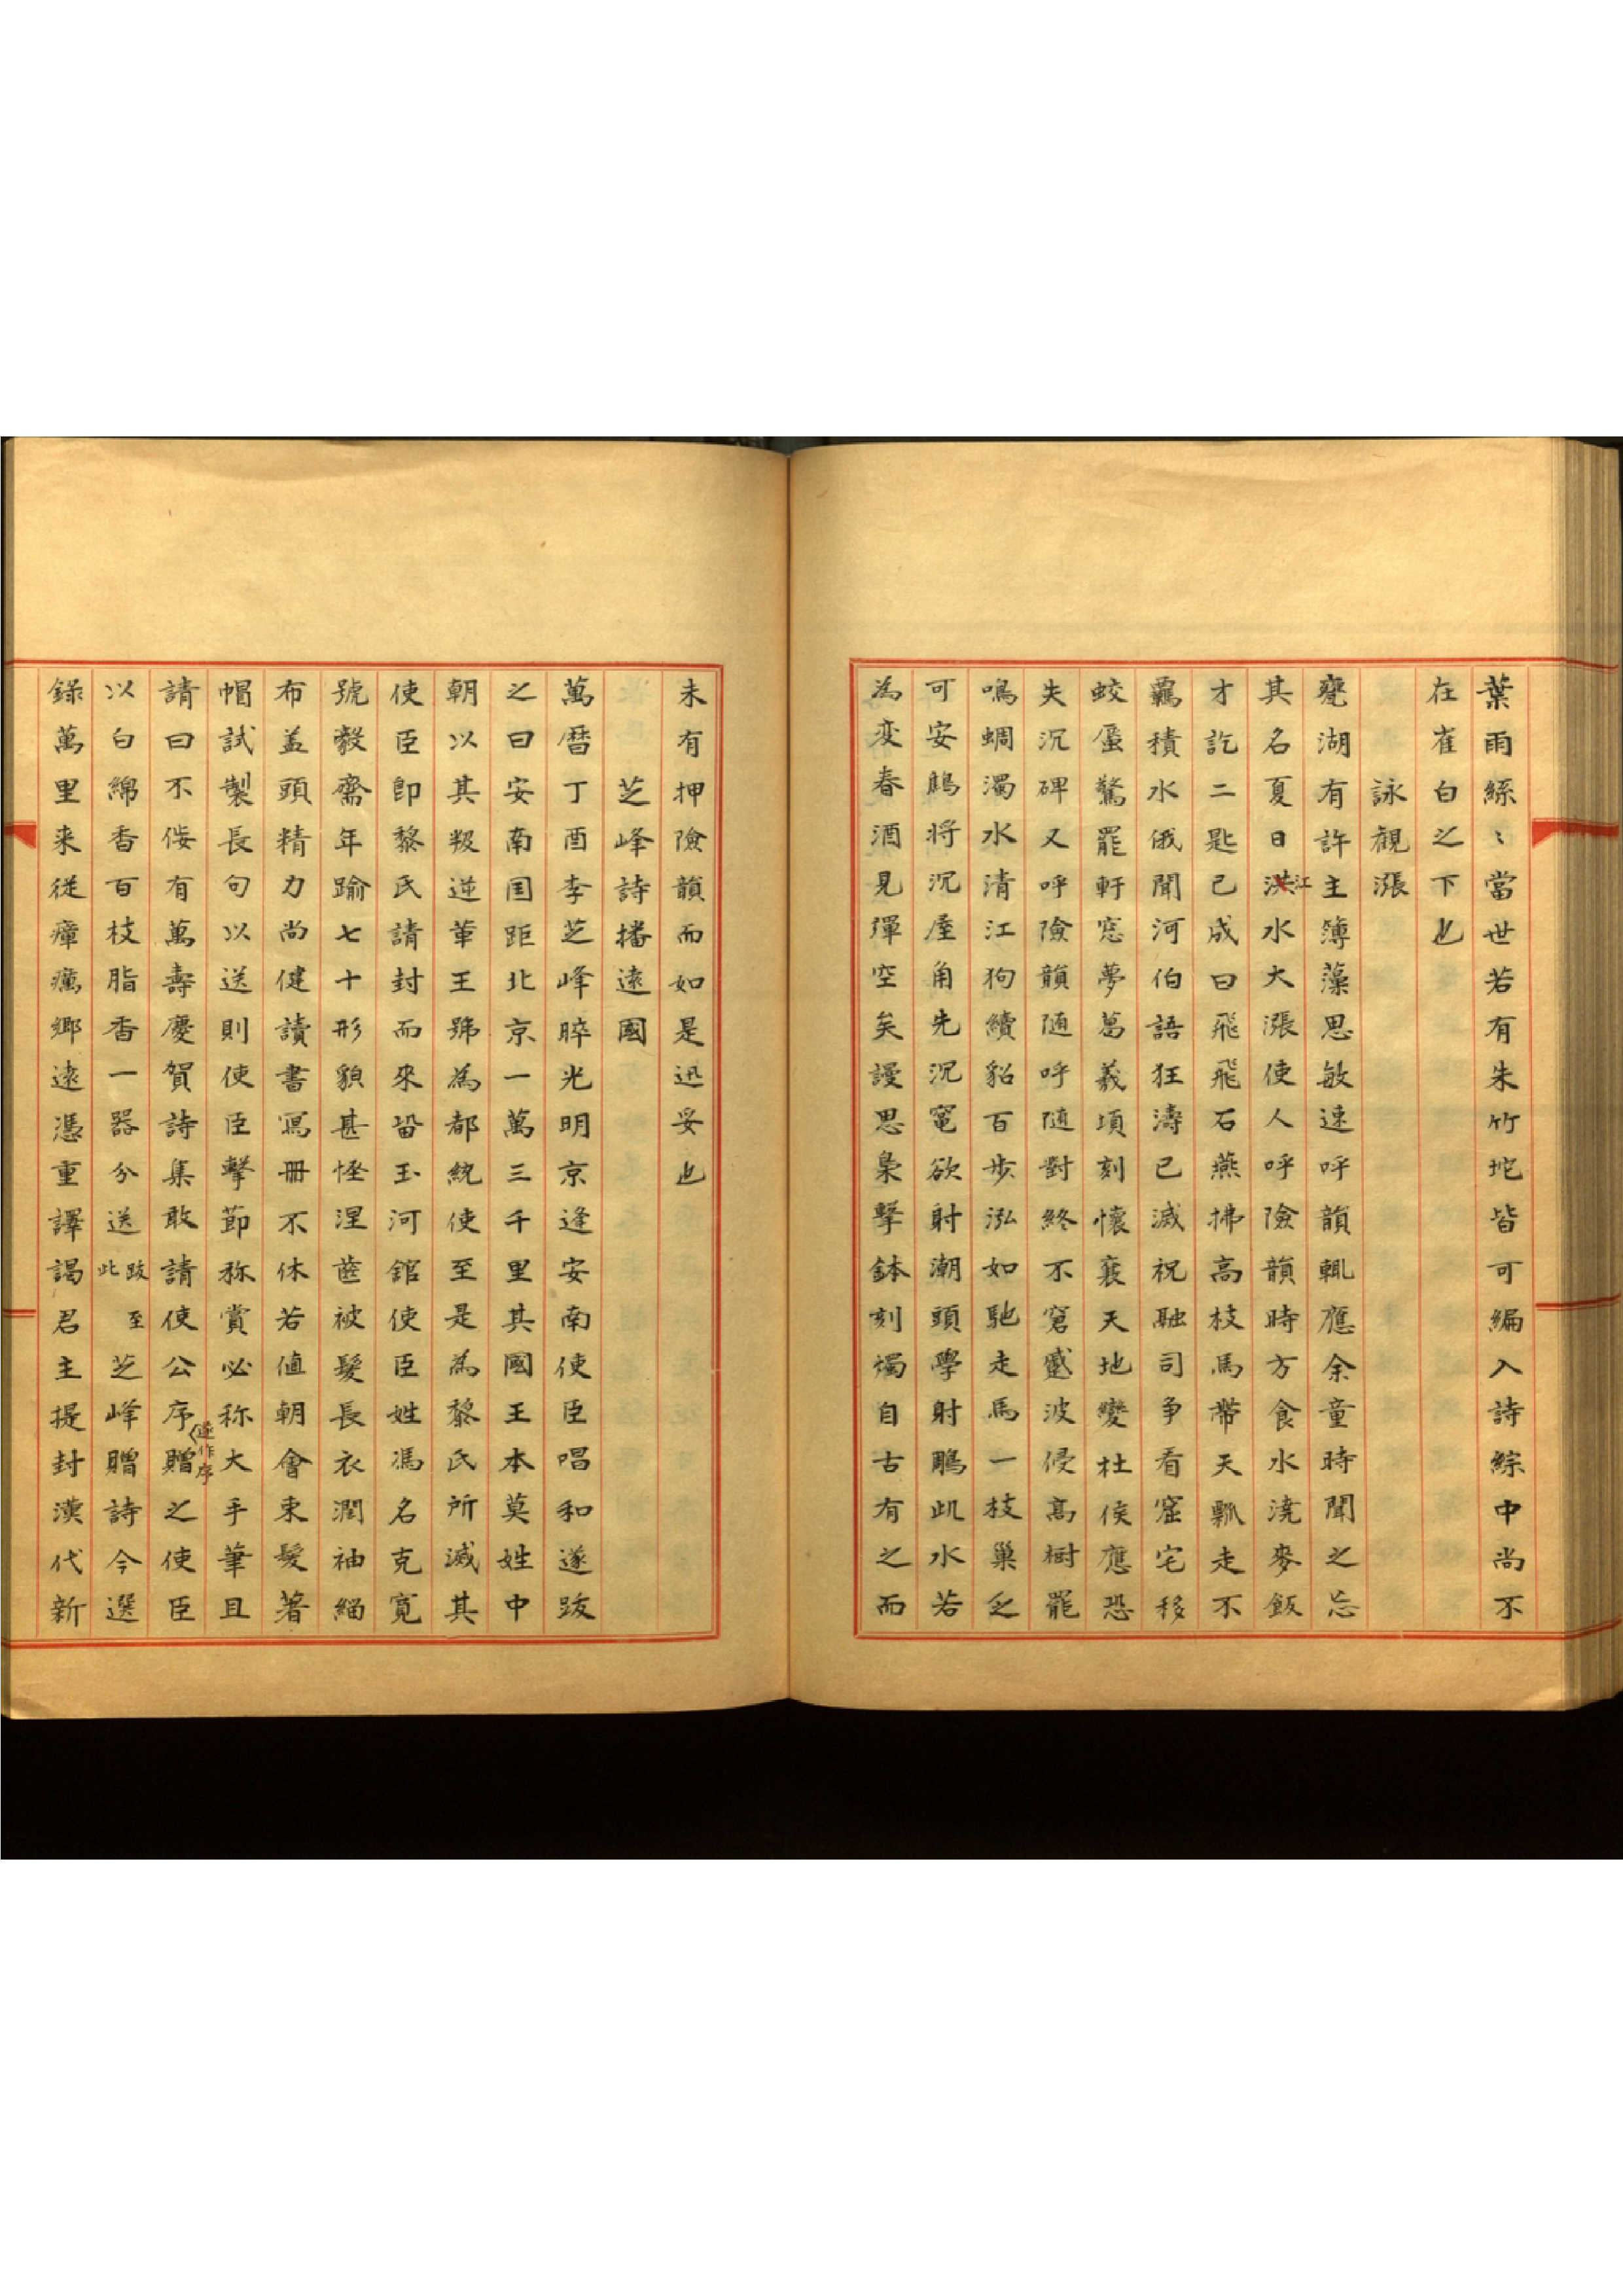 葉雨絲〻當世若有朱竹坨皆可編入詩綜中尚不
在崔白之下也
詠觀漲
甕湖有許主簿藻思敏速呼韻輒應余童時聞之忘
其名夏日洪江水大漲使人呼險韻時方食水澆麥飯
才訖二匙已成曰飛飛石燕拂高枝馬帶天瓢走不
羈積水俄聞河伯語狂濤已滅祝融司爭看窟宅移
蛟蜃驚罷軒窓夢葛羲項刻懷襄天地變杜侯應恐
失沉碑又呼險韻随呼随對終不窘蹙波侵高樹罷
鳴蜩濁水清江狗續貂百步泓如馳走馬一枝巢乏
可安鷦将沉屋角先沉竃欲射潮頭學射鵰此水若
為変春酒見殫空矣謾思梟擊鉢刻燭自古有之而
未有押險韻而如是迅妥也
芝峰詩播遠國
萬曆丁酉李芝峰睟光明京逢安南使臣唱和遂跋
之曰安南国距北京一萬三千里其國王本莫姓中
朝以其叛逆革王號為都統使至是為黎氏所滅其
使臣即黎氏請封而來畱玉河館使臣姓馮名克寛
號毅齋年踰七十形貌甚恠涅齒被髮長衣濶袖緇
布盖頭精力尚健讀書寫冊不休若値朝會束髮著
帽試製長句以送則使臣擊節称賞必称大手筆且
請曰不侫有萬壽慶賀詩集敢請使公序遂作序贈之使臣
以白綿香百枝脂香一器分送跋至此芝峰贈詩今選
錄萬里来從瘴癘鄉遠憑重譯謁君主提封漢代新